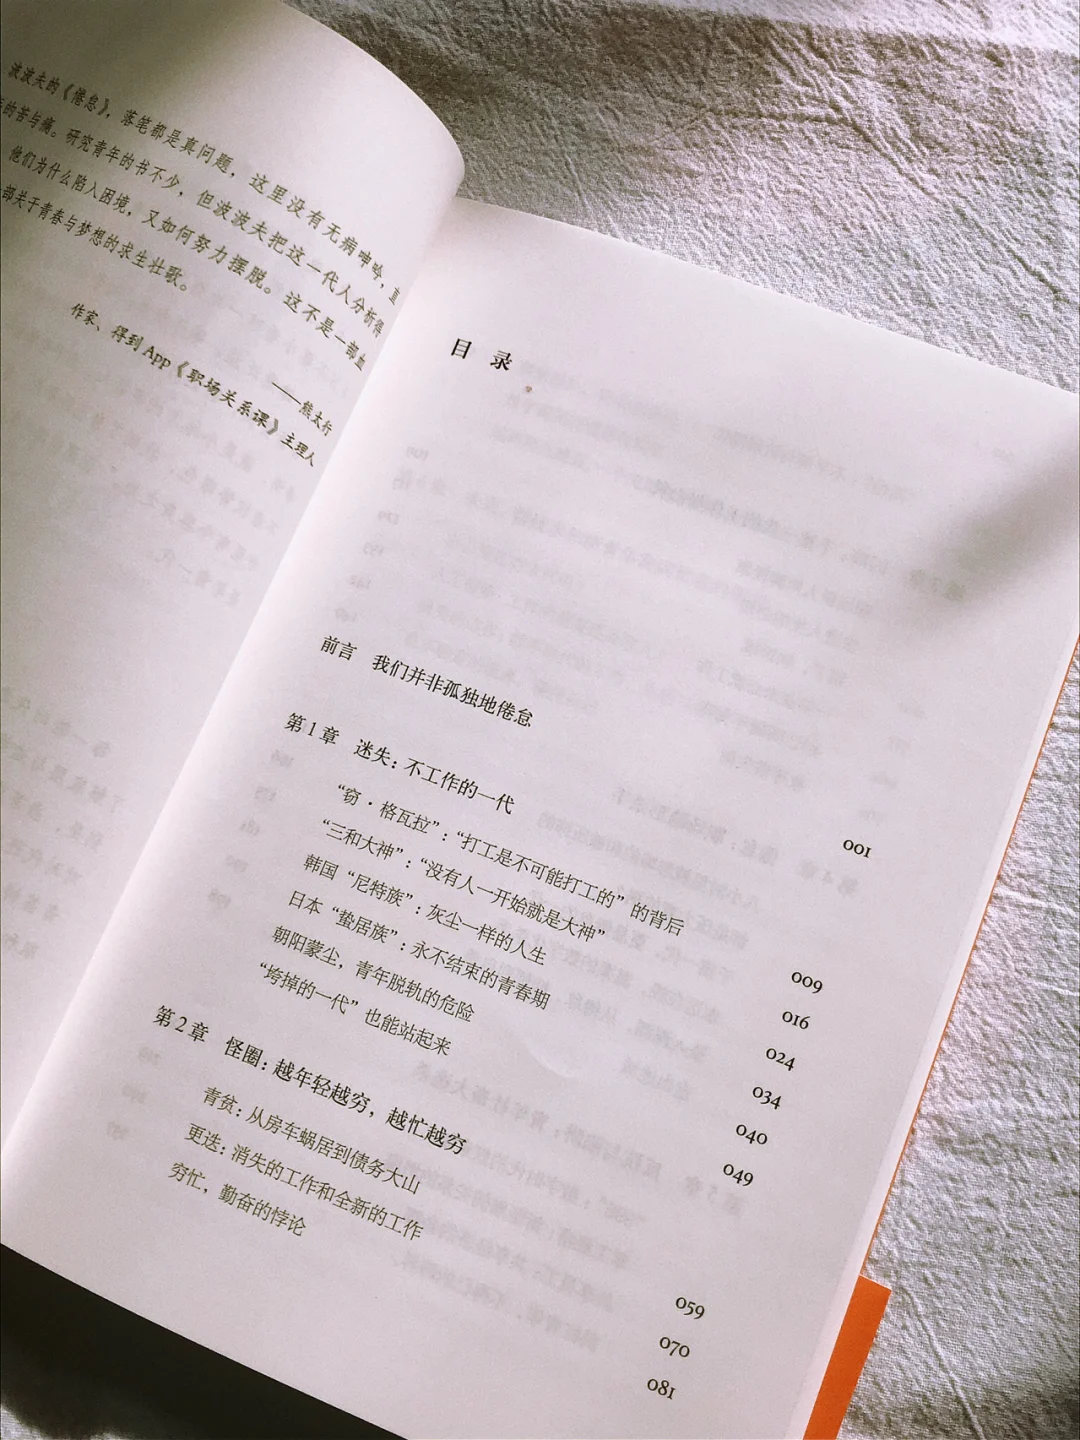 波波夫的《倦怠》，落笔都是真问题，这里没有无病呻吟，直
的苦与痛。研究青年的书不少，但波波夫把这一代人分析得
他们为什么陷入困境，又如何努力摆脱。这不是一部血
部关于青春与梦想的求生壮歌。
——熊太行
作家、得到App《职场关系课》主理人
目 录
前言 我们并非孤独地倦怠 001
第1章 迷失：不工作的一代
“窃·格瓦拉”：“打工是不可能打工的”的背后 009
“三和大神”：“没有人一开始就是大神” 016
韩国“尼特族”：灰尘一样的人生 024
日本“蛰居族”：永不结束的青春期 034
朝阳蒙尘，青年脱轨的危险 040
“垮掉的一代”也能站起来 049
第2章 怪圈：越年轻越穷，越忙越穷
青贫：从房车蜗居到债务大山 059
更迭：消失的工作和全新的工作 070
穷忙，勤奋的悖论 081